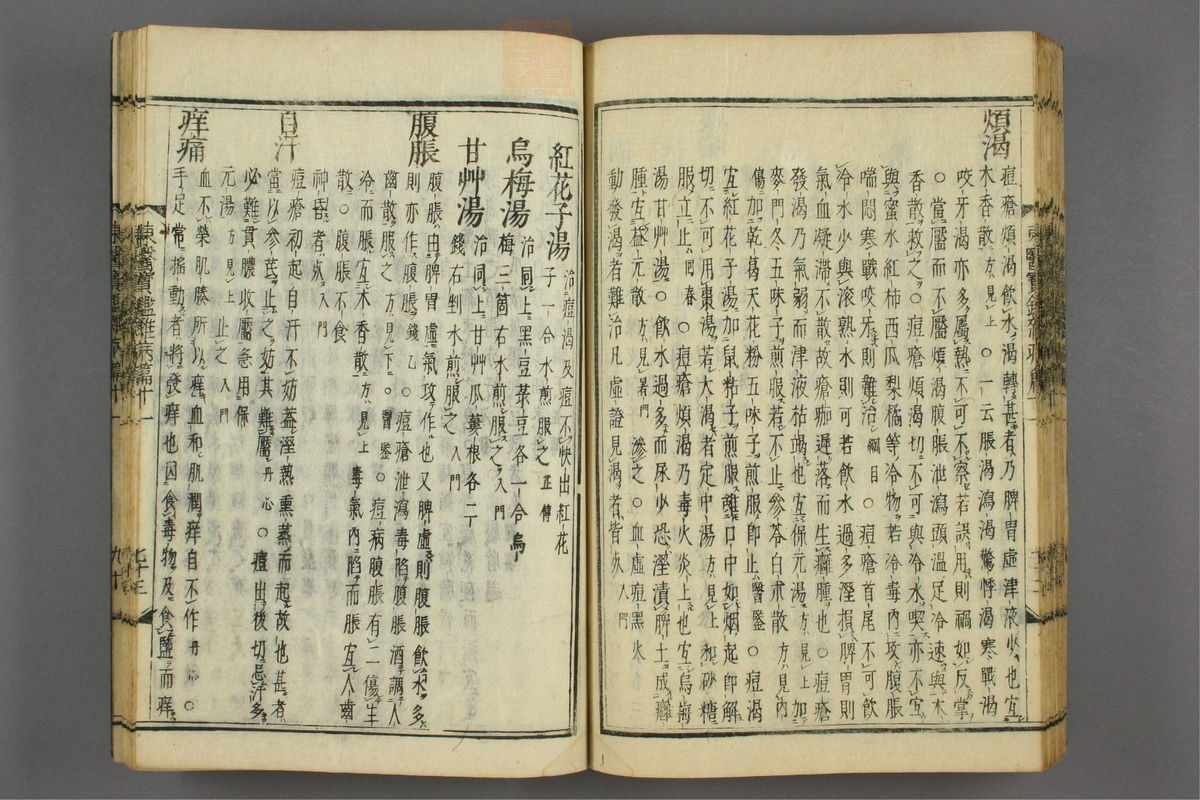 煩渴
痘瘡煩渴飮水渴轉甚者乃脾胃虛津液少也宜
木香散方見上○一云脹渴瀉渴驚悸渴寒戰渴
咬牙渴亦多屬熱不可不察若誤用則禍如反掌
○當靨而不靨煩渴腹脹泄瀉頭溫足冷速與木
香散救之○痘瘡煩渴切不可與冷水喫亦不宜
與蜜水紅柿西瓜梨橘等冷物若冷毒內攻腹脹
喘悶寒戰咬牙則難治綱目○痘瘡首尾不可飮
冷水少與滾熟水則可若飮水過多溼損脾胃則
氣血凝滯不散故瘡痂遲落而生癰腫也○痘瘡
發渴乃氣弱而津液枯竭也宜保元湯方見上加
麥門冬五味子煎服若不止參苓白朮散方見內
傷加乾葛天花粉五味子煎服卽止醫鑒○痘渴
宜紅花子湯加鼠粘子煎服雖口中如烟起卽解
切不可用棗湯若大渴者定中湯方見上和砂糖
服立止回春○痘瘡煩渴乃毒火炎上也宜烏梅
湯甘艸湯○飮水過多而尿少恐溼漬脾土成癰
腫宜益元散方見暑門滲之○血虛痘黑火
動發渴者難治凡虛證見渴者皆火入門
紅花子湯 治痘渴及痘不快出紅花
子一合水煎服之正傳
烏梅湯 治同上黑豆菉豆各一合烏
梅三箇右水煎服之入門
甘艸湯 治同上甘艸瓜蔞根各二
錢右剉水煎服之入門
腹脹
腹脹由脾胃虛氣攻作也又脾虛則腹脹飮水多
則亦作腹脹錢乙○痘瘡泄瀉毒陷腹脹酒調人
齒散服之方見下醫鑒○痘病腹脹有二傷生
冷而脹宜木香散方見上毒氣內陷而脹宜人齒
散○腹脹不食
神昏者死入門
自汗
痘瘡初起自汗不妨蓋溼熱熏蒸而起故也甚者
當以參芪止之妨其難靨丹心○痘出後切忌汗多
必難貫膿收靨急用保
元湯方見上止之入門
痒痛
血不榮肌腠所以痒血和肌潤痒自不作丹心○
手足常搖動者將發痒也因食毒物及食鹽而痒
東醫寶鑑雜病篇十一